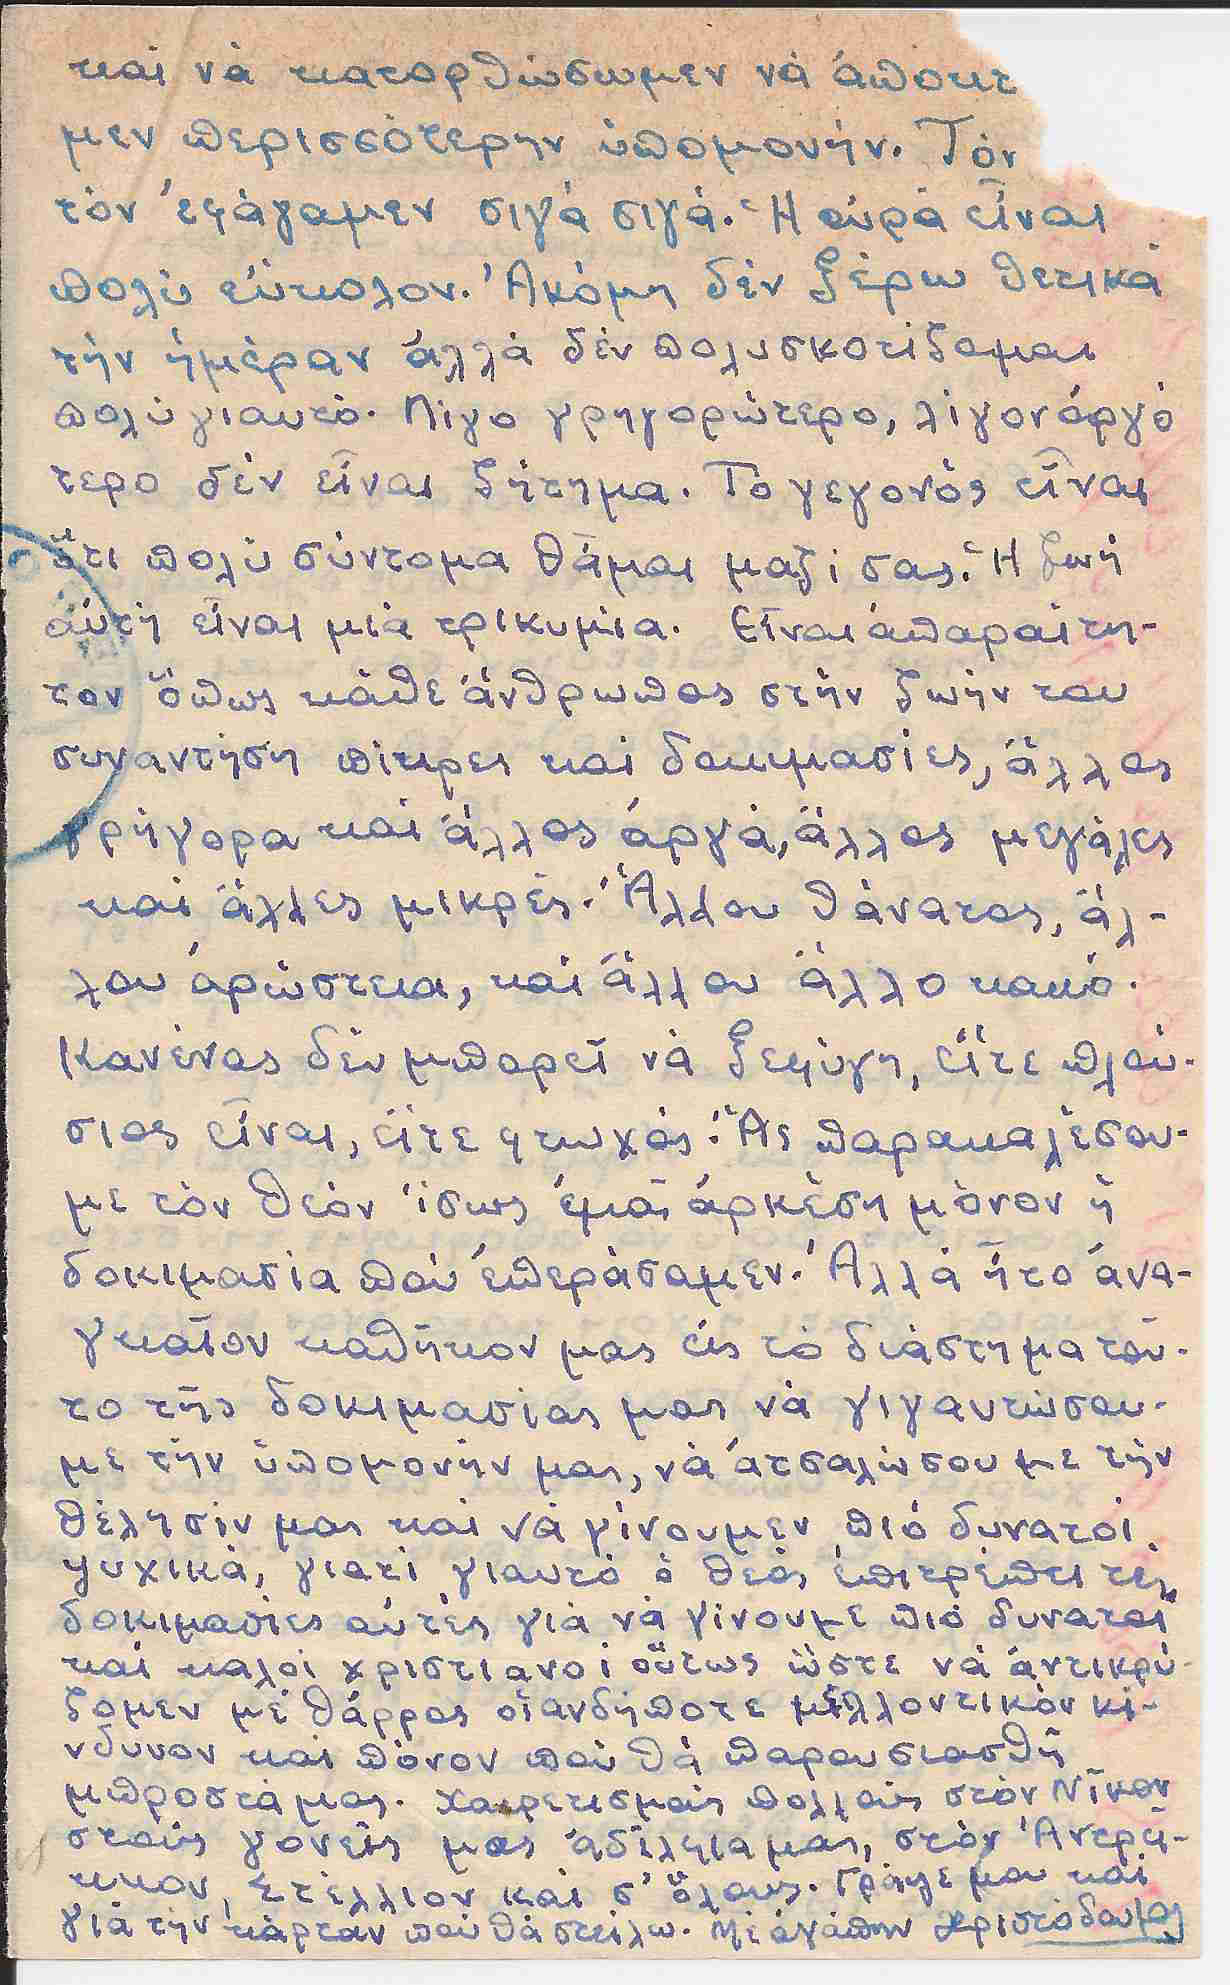 καὶ νὰ κατορθώσωμεν νὰ ἀποκτ
μεν περισσότερην ὑπομονήν. Τὸν
τὸν ἐφάγαμεν σιγὰ σιγά. Ἡ οὐρὰ εἶναι
πολὺ εὔκολον. Ἀκόμη δὲν ξέρω θετικὰ
τὴν ἡμέραν ἀλλὰ δὲν πολυσκοτίζομαι
πολὺ γιαυτό. Λίγο γρηγορώτερο, λίγον ἀργό
τερο δὲν εἶναι ζήτημα. Τὸ γεγονὸς εἶναι
ὅτι πολὺ σύντομα θἆμαι μαζί σας. Ἡ ζωὴ
αὐτὴ εἶναι μιὰ τρικυμία. Εἶναι ἀπαραίτη-
τον ὅπως κάθε ἄνθρωπος στὴν ζωήν του
συναντήση πίκρες καὶ δοκιμασίες, ἄλλος
γρήγορα καὶ ἄλλος ἀργά, ἄλλος μεγάλες
καὶ ἄλλες μικρές. Ἄλλου θάνατος, ἄλ-
λου ἀρώστεια, καὶ ἄλλου ἄλλο κακό.
Κανένας δὲν μπορεῖ νὰ ξεφύγη, εἴτε πλού-
σιος εἶναι, εἴτε φτωχός. Ἄς παρακαλέσου-
με τὸν θεὸν ἴσως ἐμᾶς ἀρκέση μόνον ἡ
δοκιμασία ποὺ ἐπεράσαμεν. Ἀλλὰ ἦτο ἀνα-
γκαῖον καθῆκον μας εἰς τὸ διάστημα τοῦ-
το τῆς δοκιμασίας μας νὰ γιγαντώσου-
με τὴν ὑπομονήν μας, νὰ ἀτσαλώσουμε τὴν
θέλησίν μας καὶ νὰ γίνουμεν πιὸ δυνατοὶ
ψυχικά, γιατὶ γιαυτὸ ὁ θεὸς ἐπιτρέπει τὲς
δοκιμασίες αὐτὲς γιὰ νὰ γίνουμε πιὸ δυνατοὶ
καὶ καλοὶ χριστιανοὶ οὕτως ὥστε νὰ ἀντικρύ-
ζομεν μὲ θάρρος οἱανδήποτε μελλοντικὸν κί-
νδυνον καὶ πόνον ποὺ θὰ παρουσιασθῆ
μπροστά μας. Χαιρετισμοὺς πολλοὺς στὸν Νῖκον
στοὺς γονεῖς μας ἀδέλφια μας, στὸν Ἀντρῖ-
κκον, Στέλλιον καὶ σ' ὅλους. Γράψε μου καὶ
γιὰ τὴν κάρταν ποὺ θὰ στείλω. Μὲ ἀγάπην Χριστόδουλος